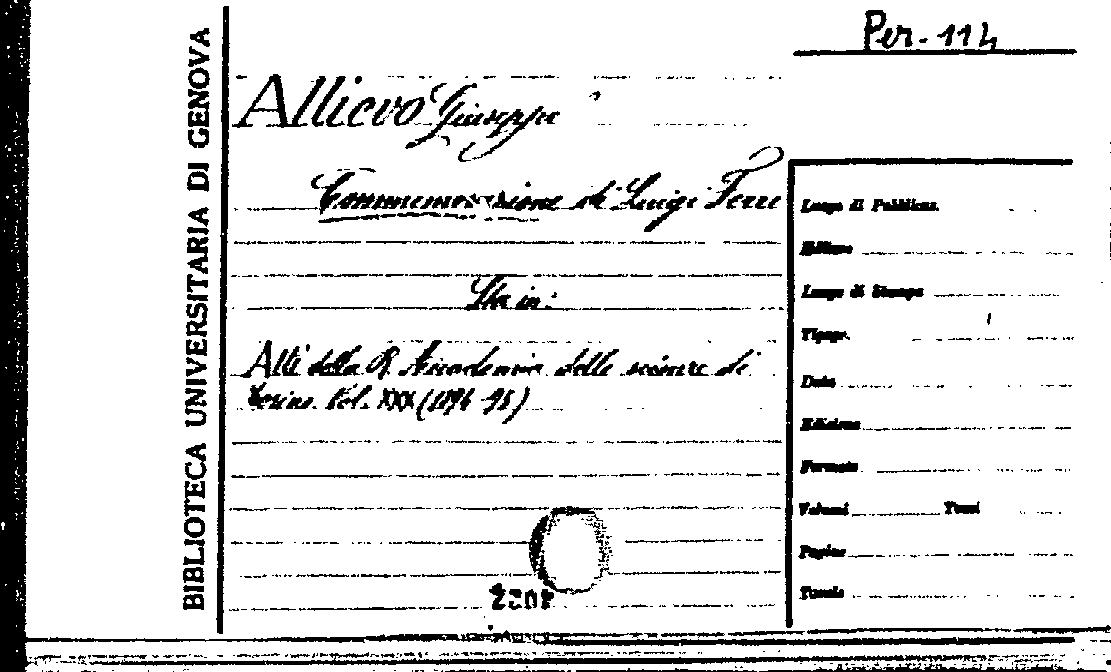 Per. 114
BIBLIOTECA UNIVERSITARIA DI GENOVA
Allievo Giuseppe
Commemorazione di Luigi Ferri
Sta in:
Atti della R. Accademia delle scienze di
Torino. Vol. XXX (1894-95)
Luogo di Pubblicaz.
Editore
Luogo di Stampa
Tipogr.
Data
Edizione
Formato
Volumi Tomi
Pagine
Tavole